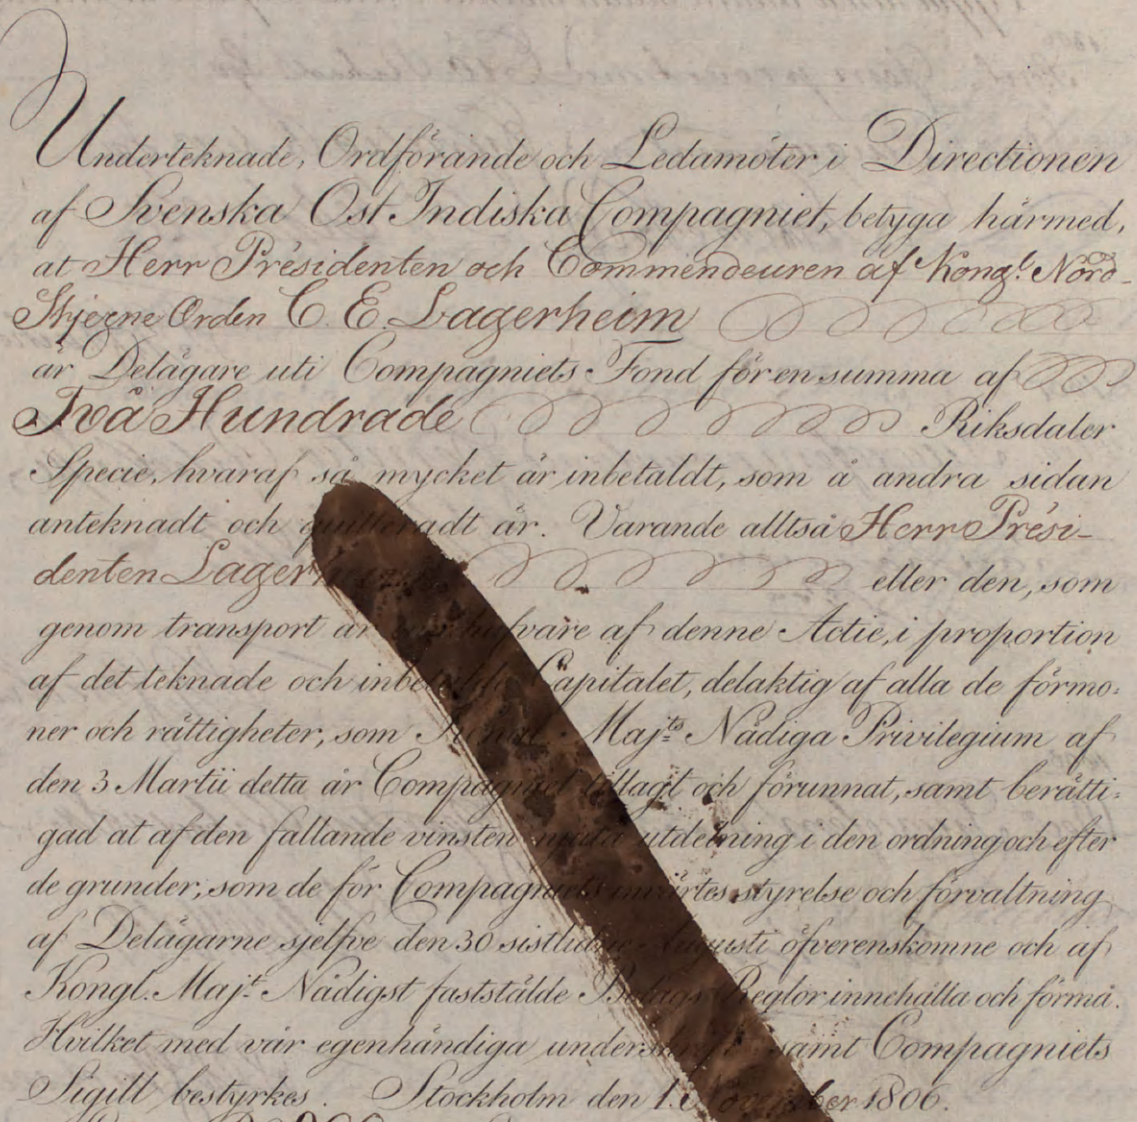 Underteknade, Ordförande och Ledamöter i Directionen
af Svenska Ost Indiska Compagniet, betyga härmed,
at Herr Présidenten och Commendeuren af Kongl. Nord-
Stjerne Orden C. E. Lagerheim
är Delägare uti Compagniets Fond för en summa af
Två Hundrade Riksdaler
Specie, hvaraf så mycket är inbetaldt, som å andra sidan
anteknadt och quitteradt är. Varande alltså Herr Prési-
denten Lagerheim eller den, som
genom transport är innehafvare af denne Actie, i proportion
af det teknade och inbetalde Capitalet, delaktig af alla de förmo:
ner och rättigheter, som Kongl. Maj:ts Nådiga Privilegium af
den 3 Martii detta år Compagniet tillagt och förunnat, samt berätti:
gad at af den fallande vinsten njuta utdelning i den ordning och efter
de grunder, som de för Compagniets invärtes styrelse och förvaltning
af Delägarne sjelfve den 30 sistlidne Augusti öfverenskomne och af
Kongl. Maj:t Nådigst faststälde Bolags Reglor innehålla och förmå.
Hvilket med vår egenhändiga underskrift samt Compagniets
Sigill bestyrkes. Stockholm den 1. November 1806.